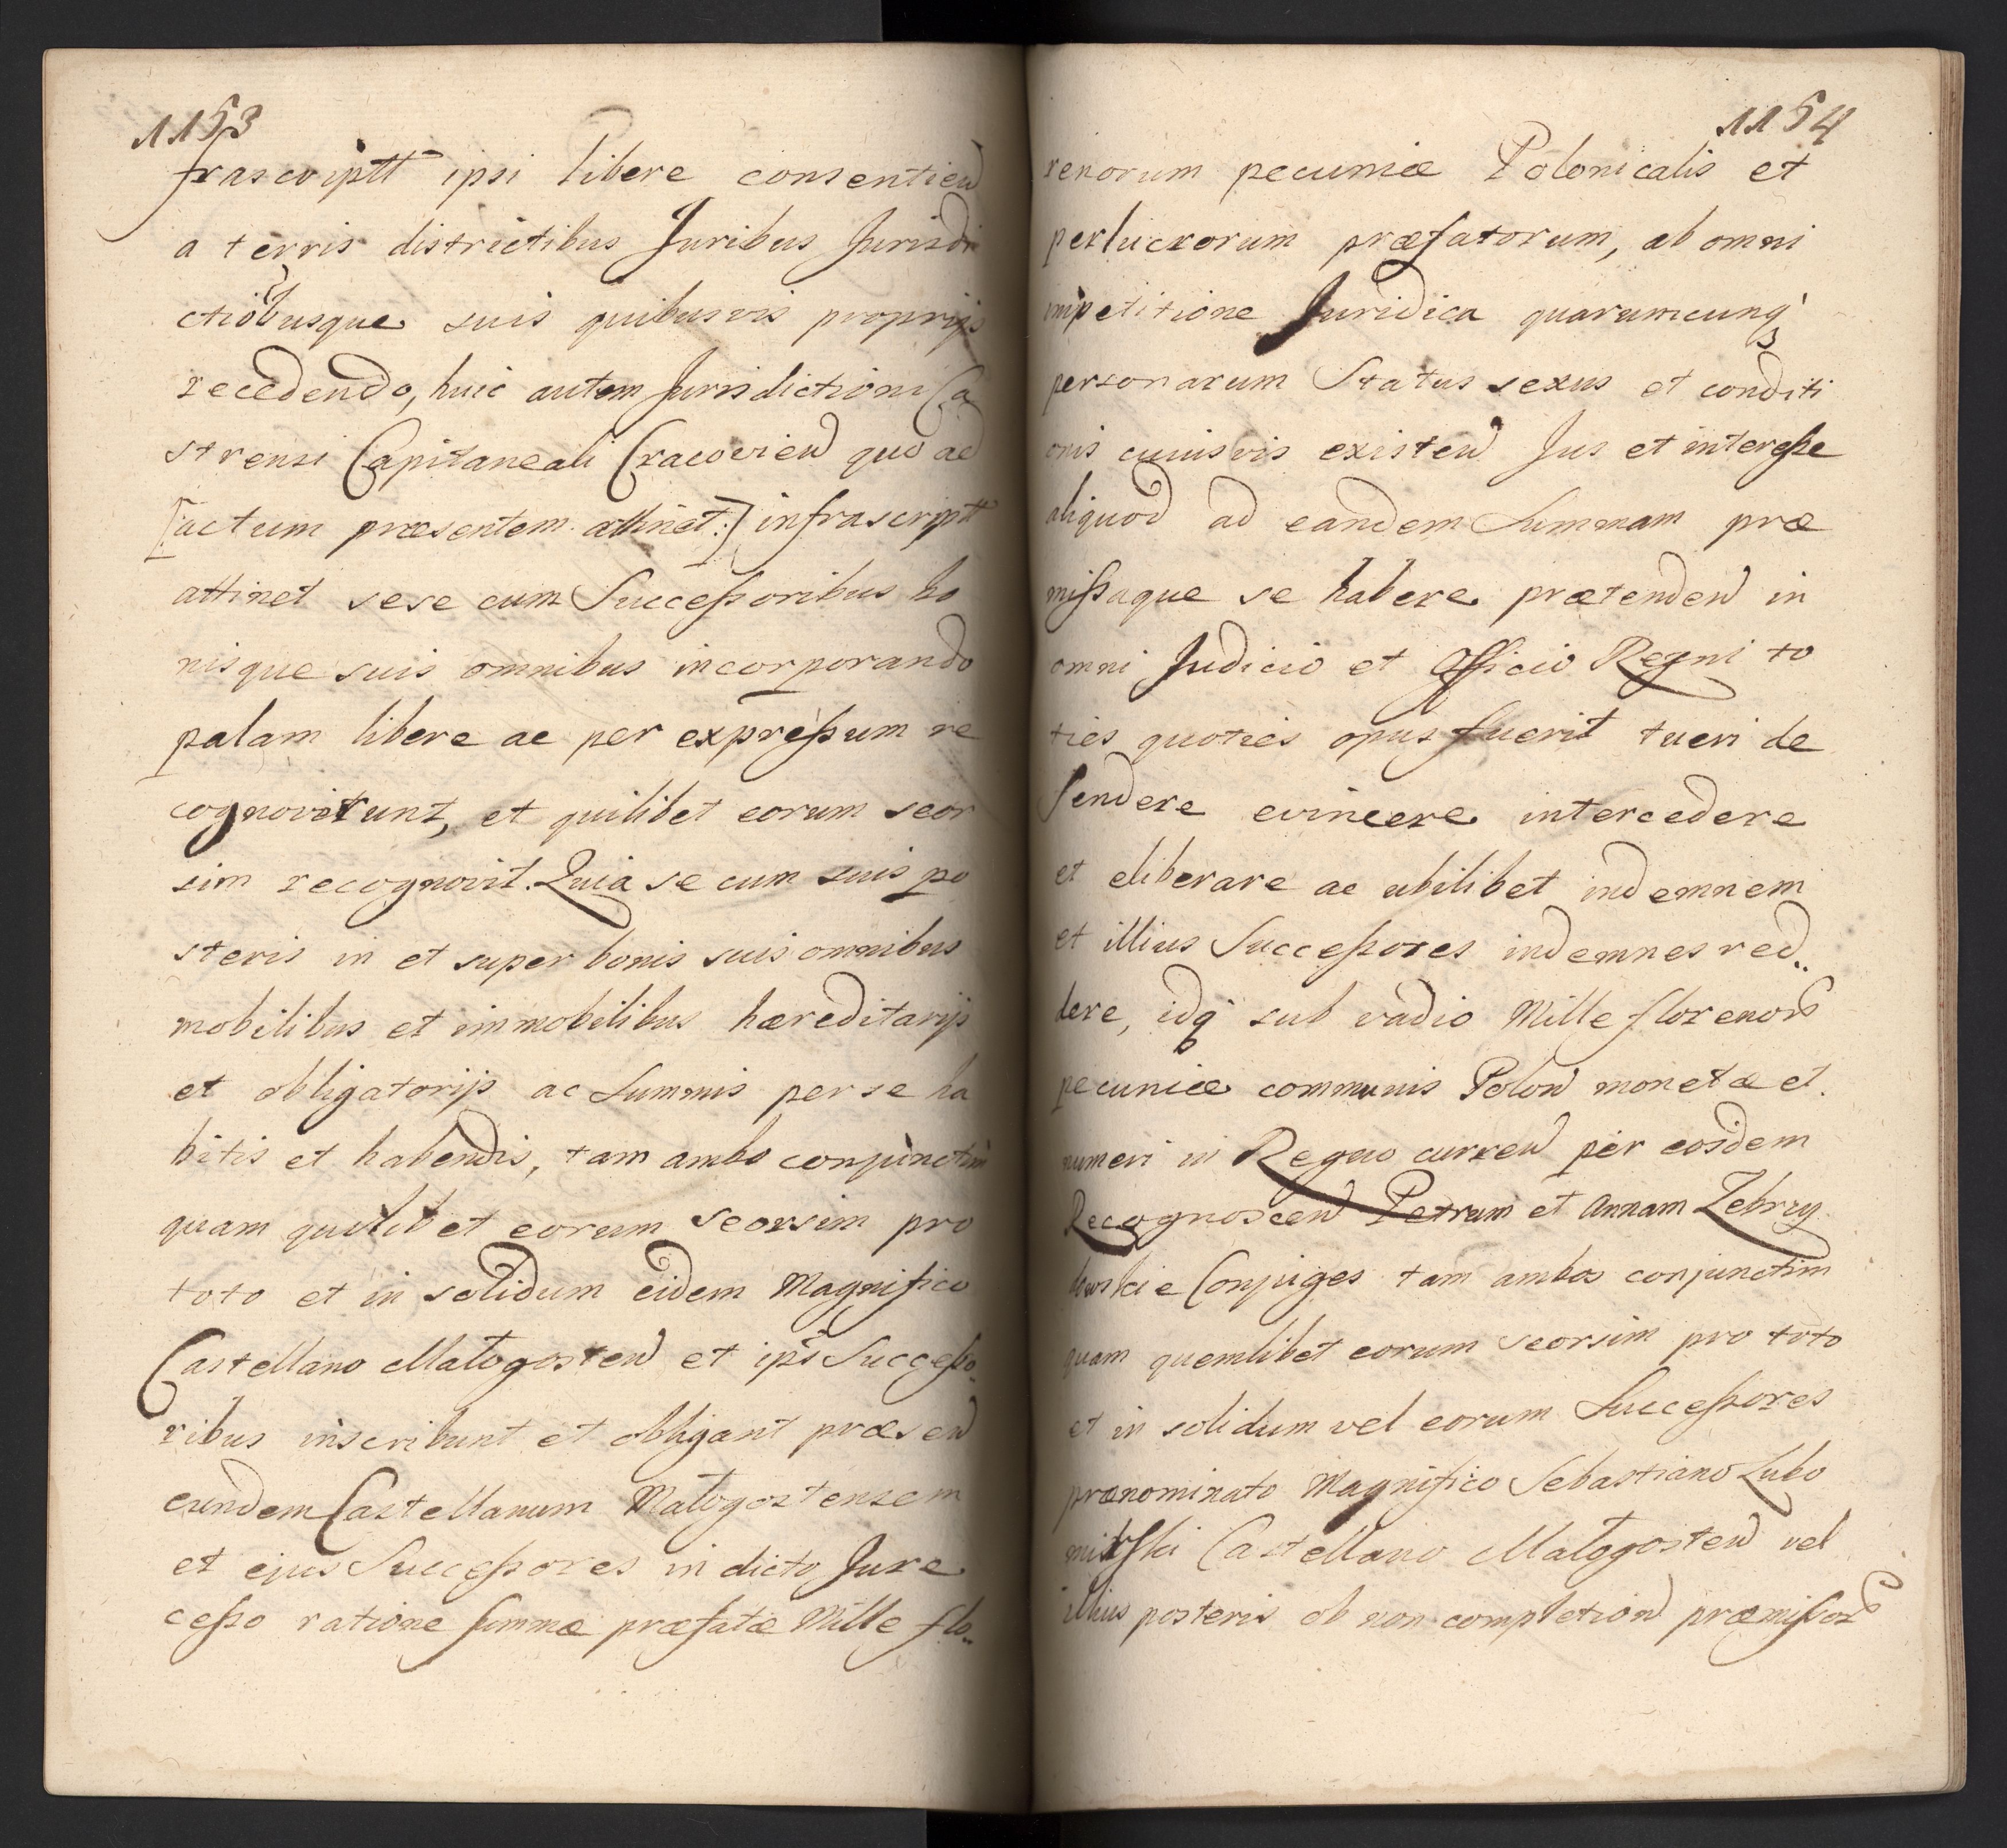 1153
frascriptt ipsi libere consentien
a terris districtibus Juribus Jurisdi
ctiobusque suis quibusvis proprijs
recedendo, huic autem Jurisdictioni Ca
strensi Capitaneali Cracovien quo ad
[actum præsentem attinet:] infrascriptt
attinet sese cum Successoribus bo
nisque suis omnibus incorporando
palam libere ac per expressum re
cognoverunt, et quilibet eorum seor
sim recognovit. Quia se cum suis po
steris in et super bonis suis omnibus
mobilibus et immobilibus hæreditarijs
et obligatorijs ac Summis per se ha
bitis et habendis, tam ambo conjunctim
quam quilibet eorum seorsim pro
toto et in solidum eidem Magnifico
Castellano Małogosten et ipsi Successo
ribus inscribunt et obligant præsen
eundem Castellanum Małogostensem
et ejus Successores in dicto Jure
cesso ratione summæ præfatæ Mille flo..
1154
renorum pecuniæ Polonicalis et
perlucrorum præfatorum, ab omni
impetitione Juridica quarumcunq
personarum Status sexus et conditi
onis cuiusvis existen Jus et interesse
aliquod ad eandem Summam præ
missaque se habere prætenden in
omni Judicio et Officio Regni to
ties quoties opus fuerit tueri de
fendere evincere intercedere
et eliberare ac ubilibet indemnem
et illius Successores indemnes red..
dere, idq sub vadio Mille florenor
pecuniæ communis Polon monetæ et
numeri in Regno curren per eosdem
Recognoscen Petrum et Annam Zebrzy
dowskie Conjuges tam ambos conjunctim
quam quemlibet eorum seorsim pro toto
et in solidum vel eorum Successores
prænominato Magnifico Sebastiano Lubo
mirski Castellano Małogosten vel
illius posteris ob non completion præmissor